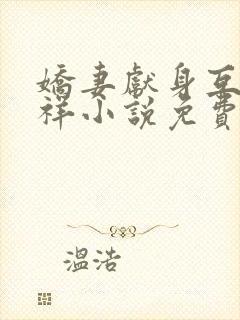 嬌妻獻身互
祥小說免費
溫浩